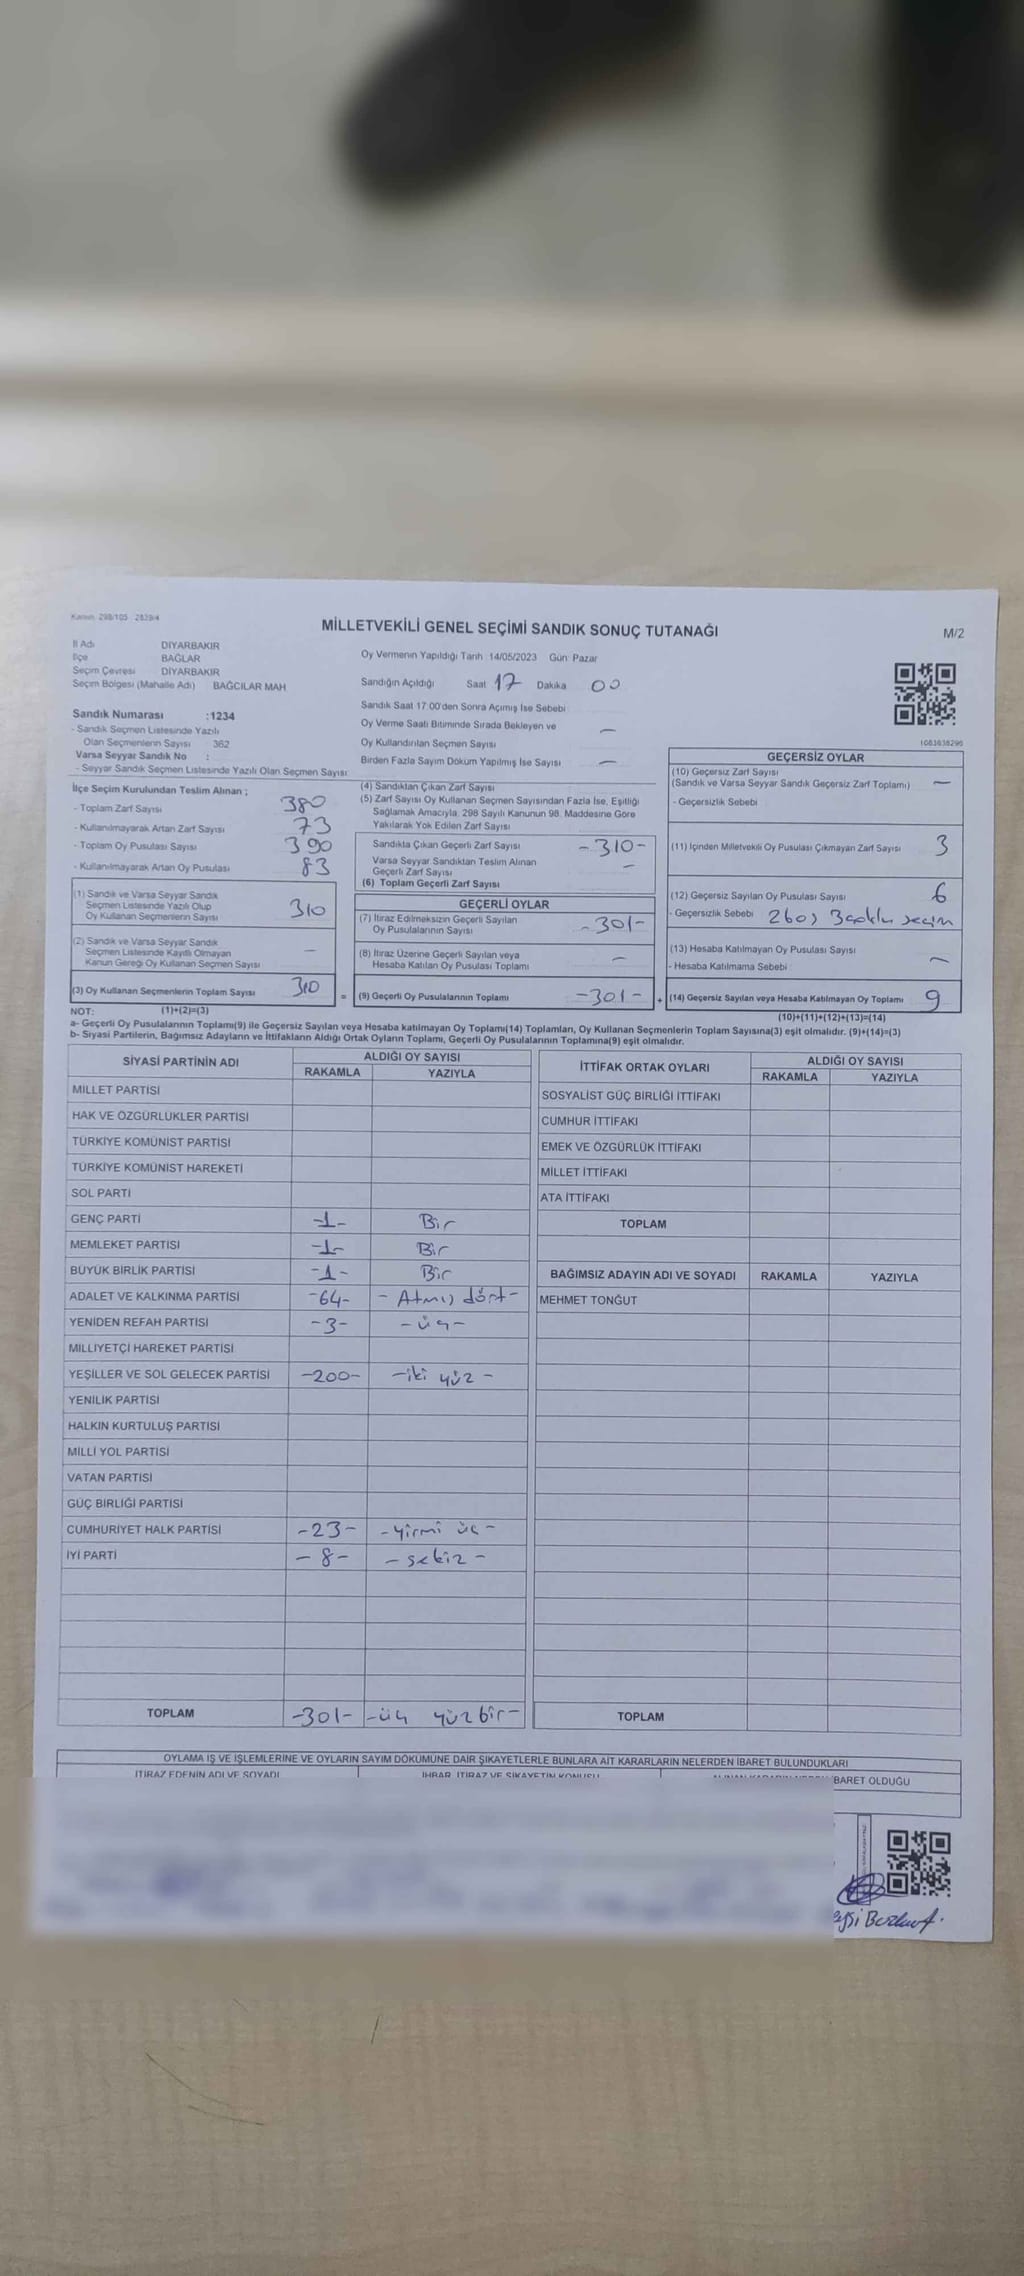 Kanun: 298/105 : 2839/4
MİLLETVEKİLİ GENEL SEÇİMİ SANDIK SONUÇ TUTANAĞI
M/2
İl Adı DİYARBAKIR
İlçe BAĞLAR
Seçim Çevresi DİYARBAKIR
Seçim Bölgesi (Mahalle Adı) BAĞCILAR MAH
Oy Vermenin Yapıldığı Tarih :14/05/2023 Gün: Pazar
Sandığın Açıldığı Saat 17 Dakika 00
Sandık Saat 17:00'den Sonra Açımış İse Sebebi
Oy Verme Saati Bitiminde Sırada Bekleyen ve
Oy Kullandırılan Seçmen Sayısı —
Birden Fazla Sayım Döküm Yapılmış İse Sayısı —
Sandık Numarası :1234
- Sandık Seçmen Listesinde Yazılı
Olan Seçmenlerin Sayısı : 362
Varsa Seyyar Sandık No :
- Seyyar Sandık Seçmen Listesinde Yazılı Olan Seçmen Sayısı:
İlçe Seçim Kurulundan Teslim Alınan ;
- Toplam Zarf Sayısı 380
- Kullanılmayarak Artan Zarf Sayısı 73
- Toplam Oy Pusulası Sayısı 390
- Kullanılmayarak Artan Oy Pusulası 83
(1) Sandık ve Varsa Seyyar Sandık
Seçmen Listesinde Yazılı Olup
Oy Kullanan Seçmenlerin Sayısı 310
(2) Sandık ve Varsa Seyyar Sandık
Seçmen Listesinde Kayıtlı Olmayan
Kanun Gereği Oy Kullanan Seçmen Sayısı —
(3) Oy Kullanan Seçmenlerin Toplam Sayısı 310
(4) Sandıktan Çıkan Zarf Sayısı
(5) Zarf Sayısı Oy Kullanan Seçmen Sayısından Fazla İse, Eşitliği
Sağlamak Amacıyla, 298 Sayılı Kanunun 98. Maddesine Göre
Yakılarak Yok Edilen Zarf Sayısı
Sandıkta Çıkan Geçerli Zarf Sayısı -310-
Varsa Seyyar Sandıktan Teslim Alınan
Geçerli Zarf Sayısı —
(6) Toplam Geçerli Zarf Sayısı
GEÇERLİ OYLAR
(7) İtiraz Edilmeksizin Geçerli Sayılan
Oy Pusulalarının Sayısı -301-
(8) İtiraz Üzerine Geçerli Sayılan veya
Hesaba Katılan Oy Pusulası Toplamı —
= (9) Geçerli Oy Pusulalarının Toplamı -301- +
1083038296
GEÇERSİZ OYLAR
(10) Geçersiz Zarf Sayısı
(Sandık ve Varsa Seyyar Sandık Geçersiz Zarf Toplamı) —
- Geçersizlik Sebebi
(11) İçinden Milletvekili Oy Pusulası Çıkmayan Zarf Sayısı 3
(12) Geçersiz Sayılan Oy Pusulası Sayısı 6
- Geçersizlik Sebebi
(13) Hesaba Katılmayan Oy Pusulası Sayısı
- Hesaba Katılmama Sebebi —
(14) Geçersiz Sayılan veya Hesaba Katılmayan Oy Toplamı 9
NOT: (1)+(2)=(3) (10)+(11)+(12)+(13)=(14)
a- Geçerli Oy Pusulalarının Toplamı(9) ile Geçersiz Sayılan veya Hesaba katılmayan Oy Toplamı(14) Toplamları, Oy Kullanan Seçmenlerin Toplam Sayısına(3) eşit olmalıdır. (9)+(14)=(3)
b- Siyasi Partilerin, Bağımsız Adayların ve İttifakların Aldığı Ortak Oyların Toplamı, Geçerli Oy Pusulalarının Toplamına(9) eşit olmalıdır.
SİYASİ PARTİNİN ADI ALDIĞI OY SAYISI
RAKAMLA YAZIYLA
MİLLET PARTİSİ
HAK VE ÖZGÜRLÜKLER PARTİSİ
TÜRKİYE KOMÜNİST PARTİSİ
TÜRKİYE KOMÜNİST HAREKETİ
SOL PARTİ
GENÇ PARTİ -1- Bir
MEMLEKET PARTİSİ -1- Bir
BÜYÜK BİRLİK PARTİSİ -1- Bir
ADALET VE KALKINMA PARTİSİ -64- - Atmış dört -
YENİDEN REFAH PARTİSİ -3- - üç -
MİLLİYETÇİ HAREKET PARTİSİ
YEŞİLLER VE SOL GELECEK PARTİSİ -200- - iki yüz -
YENİLİK PARTİSİ
HALKIN KURTULUŞ PARTİSİ
MİLLİ YOL PARTİSİ
VATAN PARTİSİ
GÜÇ BİRLİĞİ PARTİSİ
CUMHURİYET HALK PARTİSİ -23- - yirmi üç -
İYİ PARTİ - 8 - - sekiz -
TOPLAM -301- - üç yüz bir -
İTTİFAK ORTAK OYLARI ALDIĞI OY SAYISI
RAKAMLA YAZIYLA
SOSYALİST GÜÇ BİRLİĞİ İTTİFAKI
CUMHUR İTTİFAKI
EMEK VE ÖZGÜRLÜK İTTİFAKI
MİLLET İTTİFAKI
ATA İTTİFAKI
TOPLAM
BAĞIMSIZ ADAYIN ADI VE SOYADI RAKAMLA YAZIYLA
MEHMET TONĞUT
TOPLAM
OYLAMA İŞ VE İŞLEMLERİNE VE OYLARIN SAYIM DÖKÜMÜNE DAİR ŞİKAYETLERLE BUNLARA AİT KARARLARIN NELERDEN İBARET BULUNDUKLARI
İTİRAZ EDENİN ADI VE SOYADI İHBAR, İTİRAZ VE ŞİKAYETİN KONUSU BARET OLDUĞU